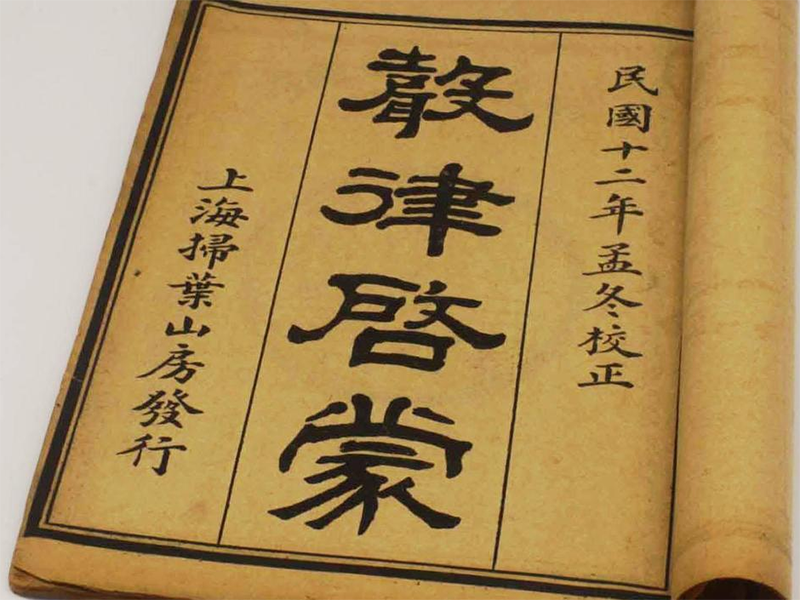 民國十二年孟冬校正
聲律啓蒙
上海掃葉山房發行